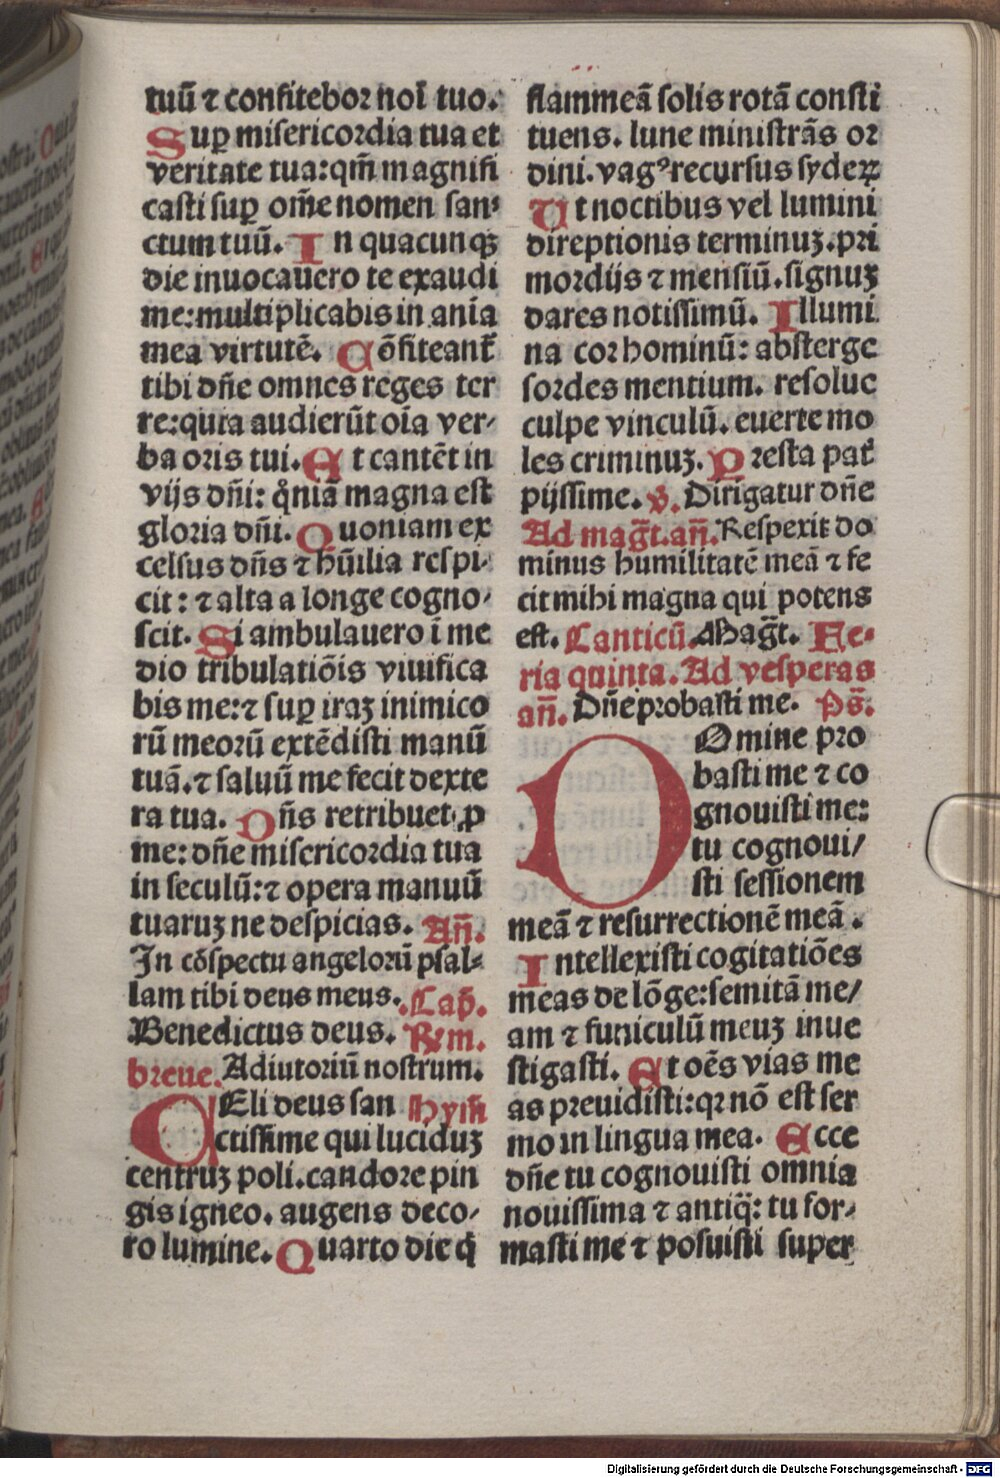 tuū ⁊ confitebor noī tuo.
Suꝑ misericordia tua et
veritate tua:qm̄ magnifi
casti suꝑ om̄e nomen san-
ctum tuū. In quacunqꝫ
die inuocauero te exaudi
me:multiplicabis in ania
mea virtutē. Cōfiteant̄
tibi dn̄e omnes reges ter
re:quia audierūt oīa ver-
ba oris tui. Et cantēt in
vijs dn̄i: qͦniā magna est
gloria dn̄i. Quoniam ex
celsus dn̄s ⁊ hūilia respi-
cit: ⁊ alta a longe cogno-
scit. Si ambulauero ī me
dio tribulatiōis viuifica
bis me:⁊ suꝑ iraꝫ inimico
rū meorū extēdisti manū
tuā.⁊ saluū me fecit dexte
ra tua. Dn̄s retribuet ꝓ
me: dn̄e misericordia tua
in seculū:⁊ opera manuū
tuaruꝫ ne despicias. An̄.
In cōspectu angelorū psal-
lam tibi deus meus. Cap̄.
Benedictus deus. Rm.
breue. Adiutoriū nostrum.
CEli deus san Hym̄
ctissime qui luciduꝫ
centruꝫ poli.candore pin
gis igneo. augens deco-
ro lumine. Quarto die q̄
flammeā solis rotā consti
tuens. lune ministrās or
dini. vagꝰ recursus sydeꝝ
Ut noctibus vel lumini
direptionis terminuꝫ.pri
mordijs ⁊ mensiū.signuꝫ
dares notissimū. Illumi
na cor hominū: absterge
sordes mentium. resolue
culpe vinculū. euerte mo
les criminuꝫ. Presta pat̄
pijssime. V. Dirigatur dn̄e
Ad mag̅t.an̄. Respexit do
minus humilitatē meā ⁊ fe
cit mihi magna qui potens
est. Canticū. Mag̅t. Fe-
ria quinta. Ad vesperas
an̄. Dn̄e probasti me. Ps̄.
DOmine pro
basti me ⁊ co
gnouisti me:
tu cognoui/
sti sessionem
meā ⁊ resurrectionē meā.
Intellexisti cogitatiōes
meas de lōge:semitā me/
am ⁊ funiculū meuꝫ inue
stigasti. Et oēs vias me
as preuidisti:qꝛ nō est ser
mo in lingua mea. Ecce
dn̄e tu cognouisti omnia
nouissima ⁊ antiq̄: tu for-
masti me ⁊ posuisti super
Digitalisierung gefördert durch die Deutsche Forschungsgemeinschaft - DFG